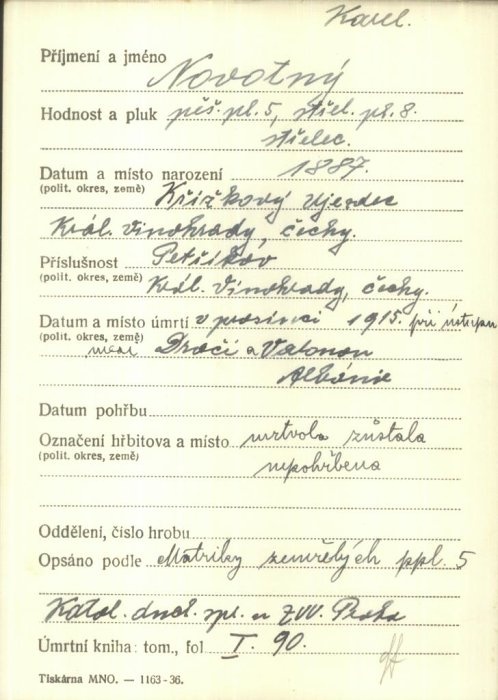 Karel.
Příjmení a jméno
Novotný
Hodnost a pluk pěš. pl. 5, střel. pl. 8.
střelec.
Datum a místo narození 1887.
(polit. okres, země) Křížkový Újezdec
Král. Vinohrady, Čechy.
Příslušnost Petříkov
(polit. okres, země) Král. Vinohrady, Čechy.
Datum a místo úmrtí v prosinci 1915. při ústupu
(polit. okres, země) mezi Drači a Valonou
Albánie
Datum pohřbu
Označení hřbitova a místo mrtvola zůstala
(polit. okres, země) nepohřbena
Oddělení, číslo hrobu
Opsáno podle Matriky zemřelých ppl. 5
Katol. duch. spr. u ZVV. Praha
Úmrtní kniha: tom., fol I. 90.
Tiskárna MNO. — 1163-36.